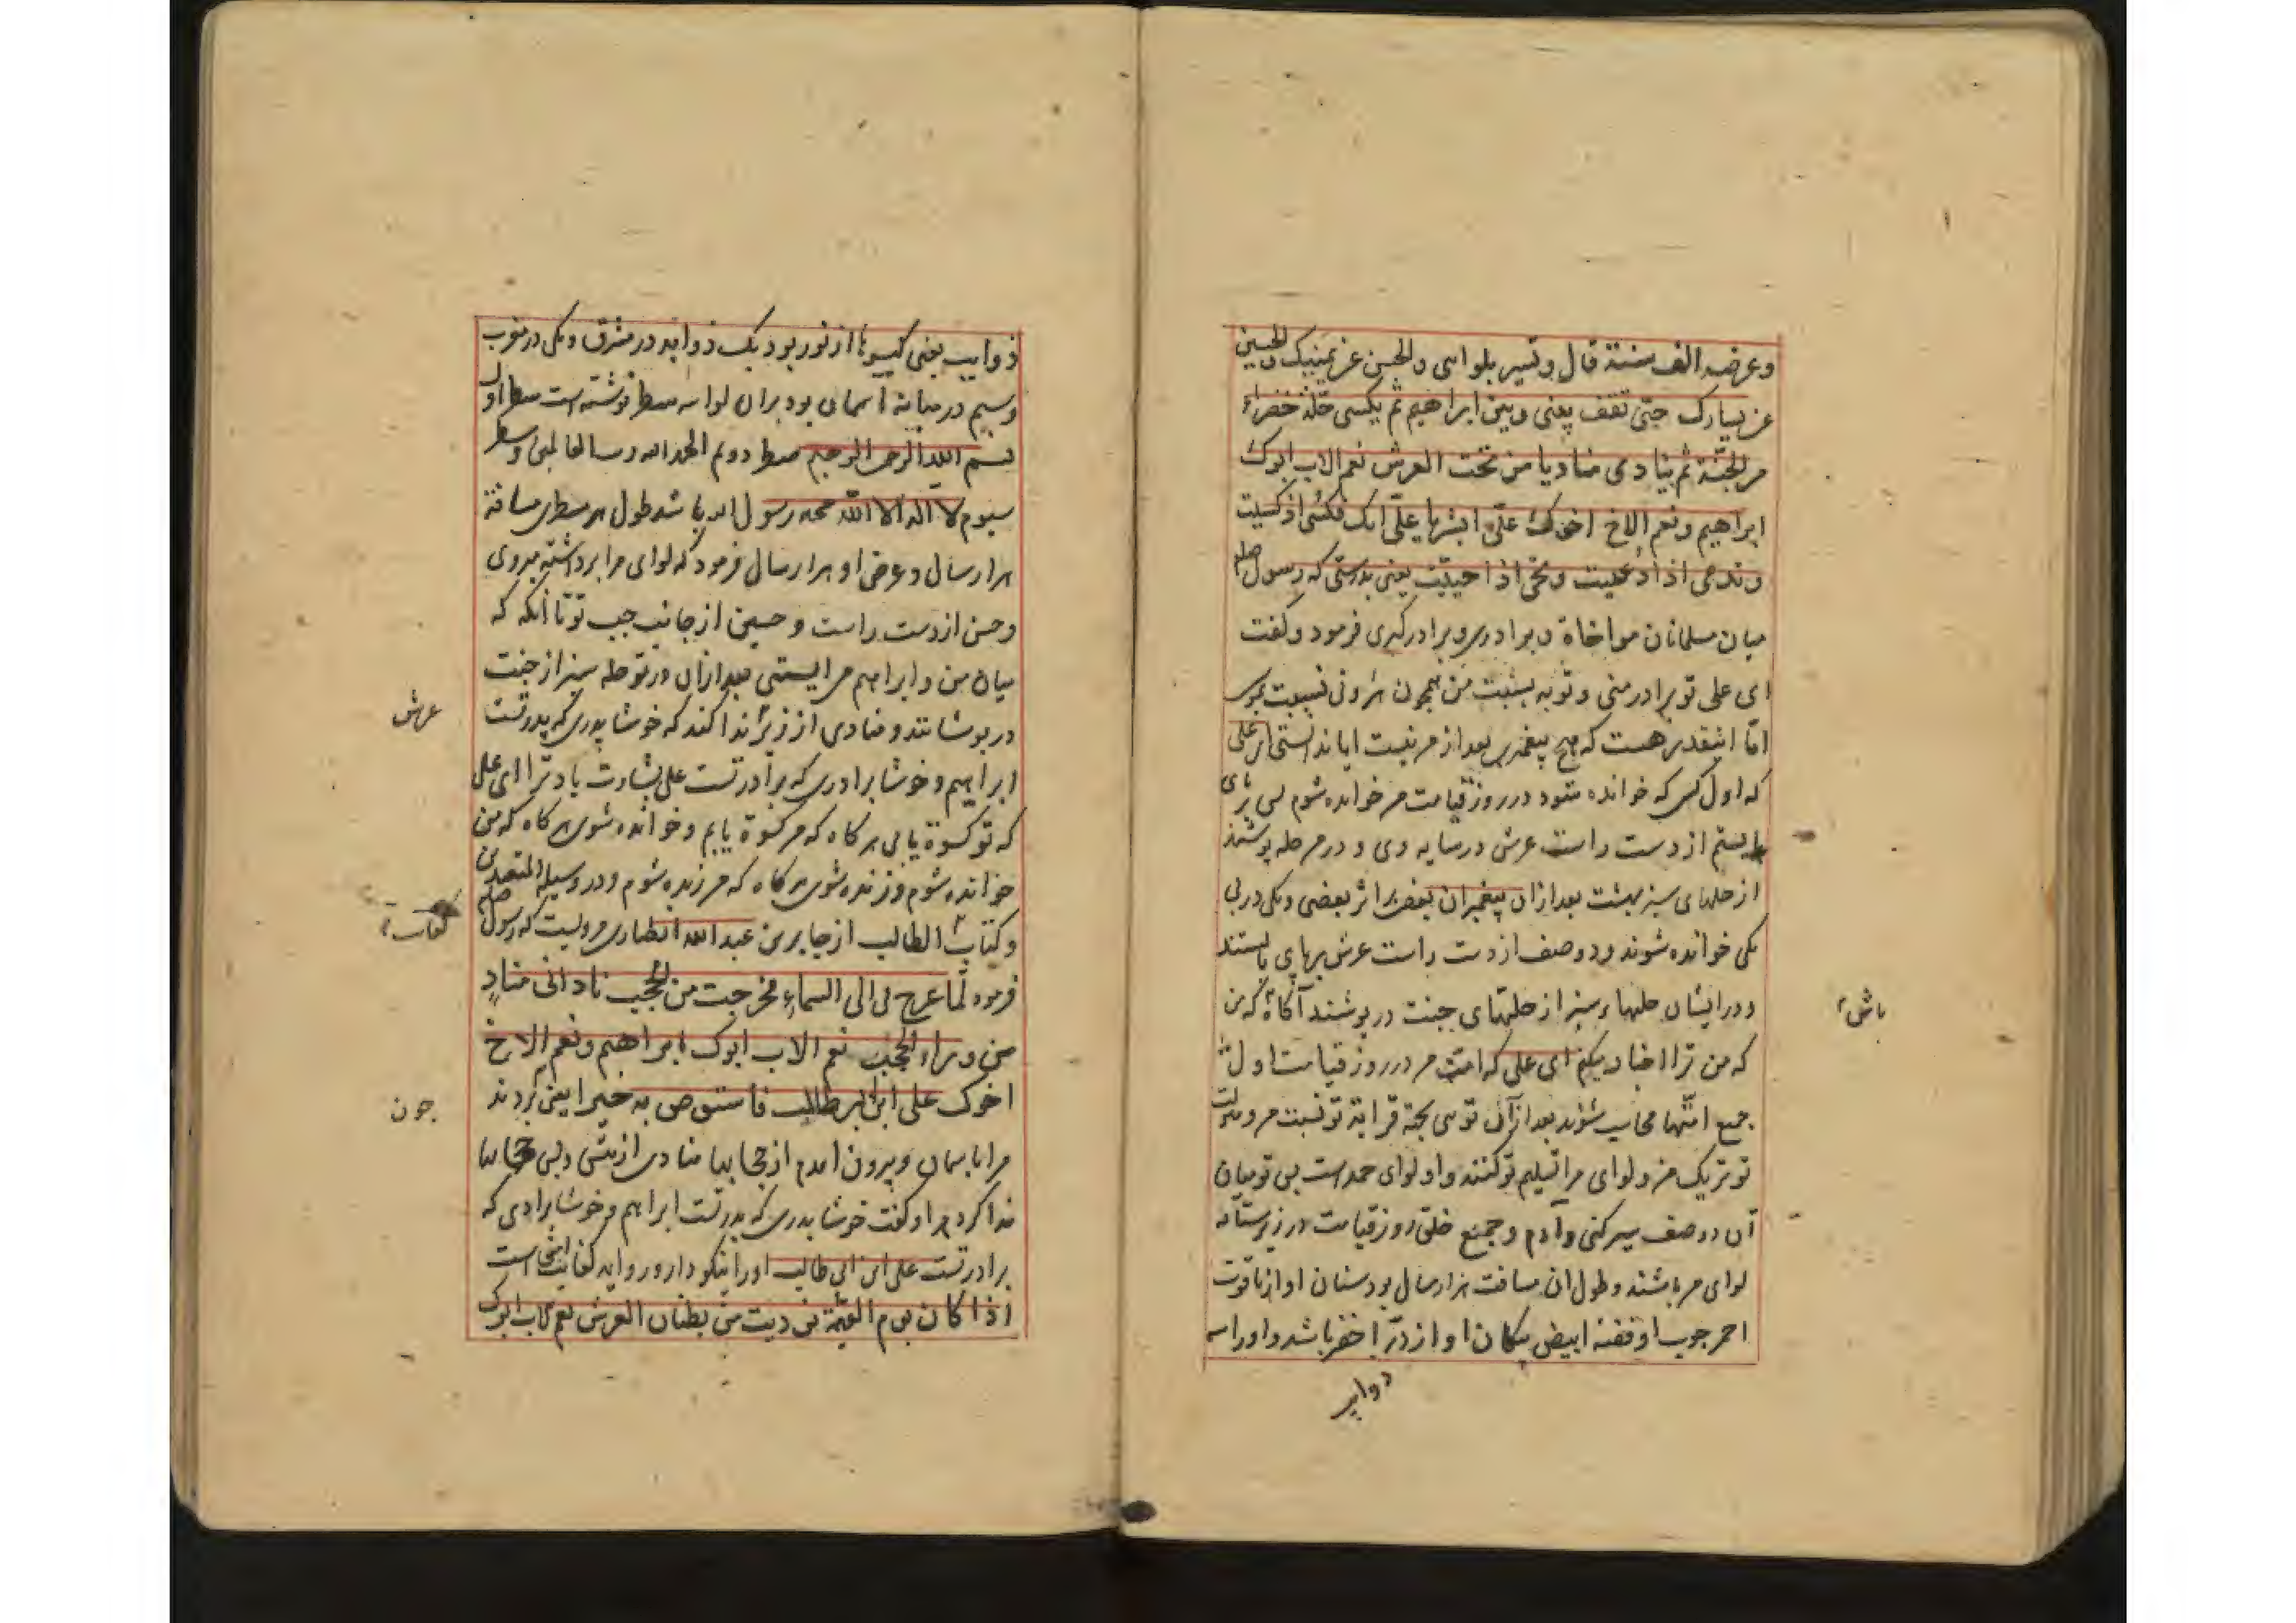 وعرضه الف سنة قال وتسیر بلوائی والحسن عن یمینک والحسین
عن یسارک حتی تقف بینی وبین ابراهیم ثم یکسی حلة خضراء
من الجنة ثم ینادی منادیا من تحت العرش نعم الاب ابوک
ابراهیم ونعم الاخ اخوک علی ابشر یا علی انک تکسی اذا کسیت
وتدعی اذا دعیت وتحیی اذا حییت یعنی بدرستی که رسول صلعم
میان مسلمانان مواخاة و برادری و برادرگیری فرمود و گفت
ای علی تو برادر منی و تو به نسبت من همچون هرونی نسبت بموسی
اما اینقدر هست که هیچ پیغمبری بعد از من نیست ایا ندانستی ای علی
که اول کسی که خوانده شود در روز قیامت من خوانده شوم پس بر پای
بایستم از دست راست عرش در سایه وی و در من حله پوشند
از حلهای سبز بهشت بعد از ان پیغمبران بعضی بر اثر بعضی و یکی در پی
یکی خوانده شوند و دو صف از دست راست عرش بر پای بایستند
و در ایشان حلهاء سبز از حلهای جنت در پوشند آگاه که من
باش
که من ترا اخبار میکنم ای علی که امت من در روز قیامت اول
جمیع امتها محاسب شوند بعد از آن توئی بجهة قرابة تو نسبت من ومنزلت
تو نزدیک من و لوای مرا تسلیم تو کنند و او لوای حمد است پس تو میان
آن دو صف سیر کنی و آدم و جمیع خلق روز قیامت در زیر سایه
لوای من باشند و طول ان مسافت هزار سال بود سنان او از یاقوت
احمر چوب او فضه ابیض پیکان او از در اخضر باشد و او را سه
ذوایب
ذوایب یعنی گیسوها از نور بود یک ذوابه در مشرق و یکی در مغرب
وسیم در میانه آسمان بود بران لوا سه سطر نوشته است سطر اول
بسم الله الرحمن الرحیم سطر دویم الحمد لله رب العالمین وسطر
سیوم لا اله الا الله محمد رسول الله باشد طول هر سطری مسافة
هزار سال و عرض او هزار سال فرمود که لوای مرا برداشته میروی
و حسن از دست راست و حسین از جانب چپ تو تا آنکه که
میان من و ابراهیم می ایستی بعد از ان در تو حله سبز از جنت
در پوشانند و منادی از زیر ندا کند که خوشا پدری که پدر تست
عرش
ابراهیم و خوشا برادری که برادر تست علی بشارت باد ترا ای علی
که تو کسوة یابی هر گاه که من کسوة یابم و خوانده شوی هر گاه که من
خوانده شوم و زنده شوی هر گاه که من زنده شوم و در وسیلة المتعبدین
و کتاب الطالب از جابر بن عبد الله انصاری مرویست که رسول صلعم
کفایت
فرموده لما عرج بی الی السماء فخرجت من الحجب نادانی مناد
من وراء الحجب نعم الاب ابوک ابراهیم ونعم الاخ
اخوک علی ابن ابی طالب فاستوص به خیرا یعنی بردند
چون
مرا باسمان و بیرون امدم از حجابها منادی از پس حجابها
ندا کرد مرا و گفت خوشا پدری که پدر تست ابراهیم و خوشا برادری که
برادر تست علی ابن ابی طالب او را نیکو دار و روایه کفایت اینجا است
اذا کان یوم القیمة نودیت من بطنان العرش نعم الاب ابوک